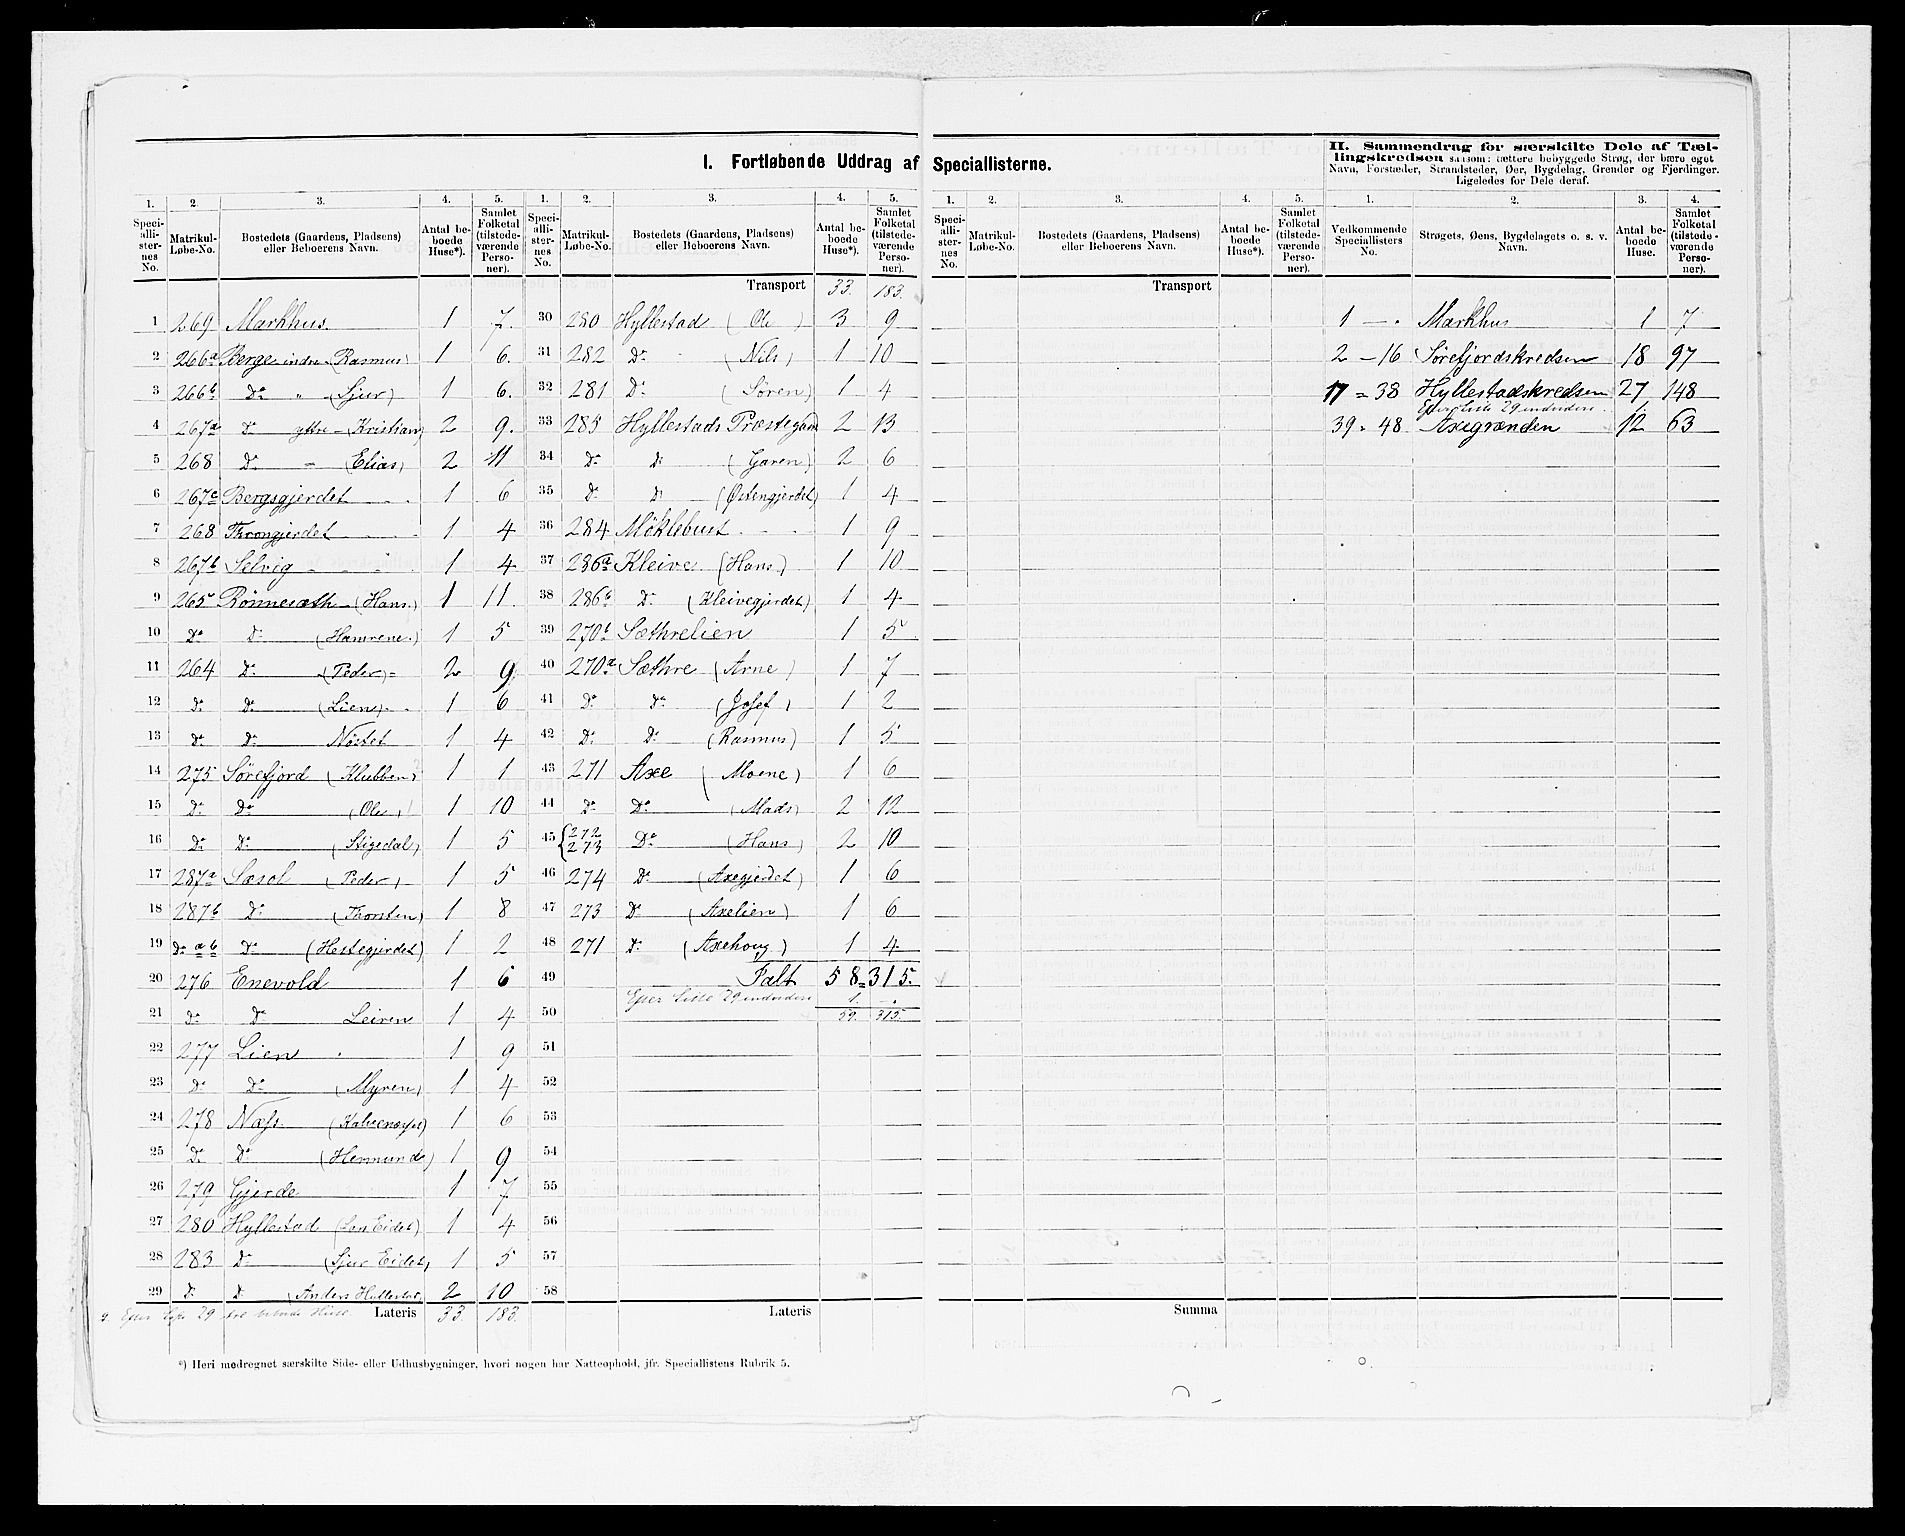 I. Fortløbende Uddrag af Speciallisterne.
II. Sammendrag for særskilte Dele af Tællingskredsen saasom: tættere bebyggede Strøg, der bære eget Navn, Forstæder, Strandsteder, Øer, Bygdelag, Grender og Fjerdinger. Ligeledes for Dele deraf.
1. 2. 3. 4. 5. 1. 2. 3. 4. 5.
Speciallisternes No. Matrikul-Løbe-No. Bostedets (Gaardens, Pladsens) eller Beboerens Navn. Antal beboede Huse*). Samlet Folketal (tilstedeværende Personer).
1 269 Markhus. 1 7.
2 266a Berge indre (Rasmus) 1 6.
3 266b Do " (Sjur) 1 6.
4 267a Do yttre (Kristian) 2 9.
5 268 Do - (Elias) 2 11
6 267c Bergsgjerdet 1 6
7 268 Throngjerdet 1 4
8 267b Selvig 1 4
9 265 Rönnesæth (Hans.) 1 11.
10 Do Do (Hamrene.) 1 5
11 264 Do (Peder) 2 9.
12 Do Do (Lien) 1 6
13 Do Do Nöstet 1 4
14 275 Sörefjord (Klubben) 1 1
15 Do Do (Ole) 1 10
16 Do Do (Stigedal) 1 5
17 287a Sæsol (Peder) 1 5
18 287b Do (Thorsten) 1 8
19 Do a b Do (Hestegjerdet) 1 2
20 276 Enevold 1 6
21 Do Do Leiren 1 4
22 277 Lien 1 9
23 Do Do (Myren) 1 4
24 278 Næss. 1 6
25 Do Do (Hermund) 1 9
26 279 Gjerde 1 7
27 280 Hyllestad 1 4
28 283 Do (Sjur Eidet) 1 5
29 Do Do (Anders Hyllestad) 2 10
Efter Liste 29 tre beboede Huse. Lateris 33. 183.
Transport 33. 183.
30 280 Hyllestad (Ole) 3 9
31 282 Do (Nils) 1 10
32 281 Do (Søren) 1 4
33 285 Hyllestads Præstegaard 2 13
34 Do Do (Garen) 2 6
35 Do Do (Østengjerdet) 1 4
36 284 Möklebust 1 9
37 286a Kleive (Hans.) 1 10
38 286b Do (Kleivegjerdet) 1 4
39 270b Sæthrelien 1 5
40 270a Sæthre (Arne) 1 7
41 Do Do (Josef) 1 2
42 Do Do (Rasmus) 1 5
43 271 Axe (Moene) 1 6
44 Do Do (Mads) 2 12
45 {272 273 Do (Hans) 2 10
46 274 Do (Axegjerdet) 1 6
47 273 Do (Axelien) 1 6
48 271 Do (Axehoug) 1 4
49 Ialt 58 315.
Efter Liste 29 endvidere 1. -
50 59. 315.
51
52
53
54
55
56
57
58
Lateris
*) Heri medregnet særskilte Side- eller Udhusbygninger, hvori nogen har Natteophold, jfr. Speciallistens Rubrik 5.
1. 2. 3. 4. 5.
Speciallisternes No. Matrikul-Løbe-No. Bostedets (Gaardens, Pladsens) eller Beboerens Navn. Antal beboede Huse*). Samlet Folketal (tilstedeværende Personer).
Transport
Summa
1. 2. 3. 4.
Vedkommende Speciallisters No. Strøgets, Øens, Bygdelagets o. s. v. Navn. Antal beboede Huse. Samlet Folketal (tilstedeværende Personer).
1 Markhus 1 7
2 - 16 Sörefjordskredsen 18 97
17 - 38 Hyllestadskredsen 27 148
Efter Liste 29 endvidere 1.
39 - 48 Axegrænden 12 63